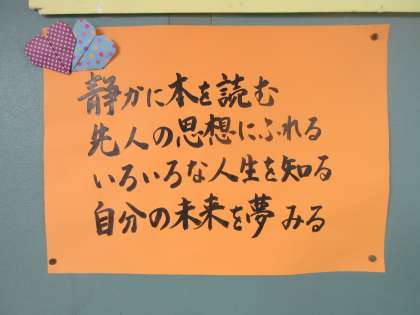 静かに本を読む
先人の思想にふれる
いろいろな人生を知る
自分の未来を夢みる